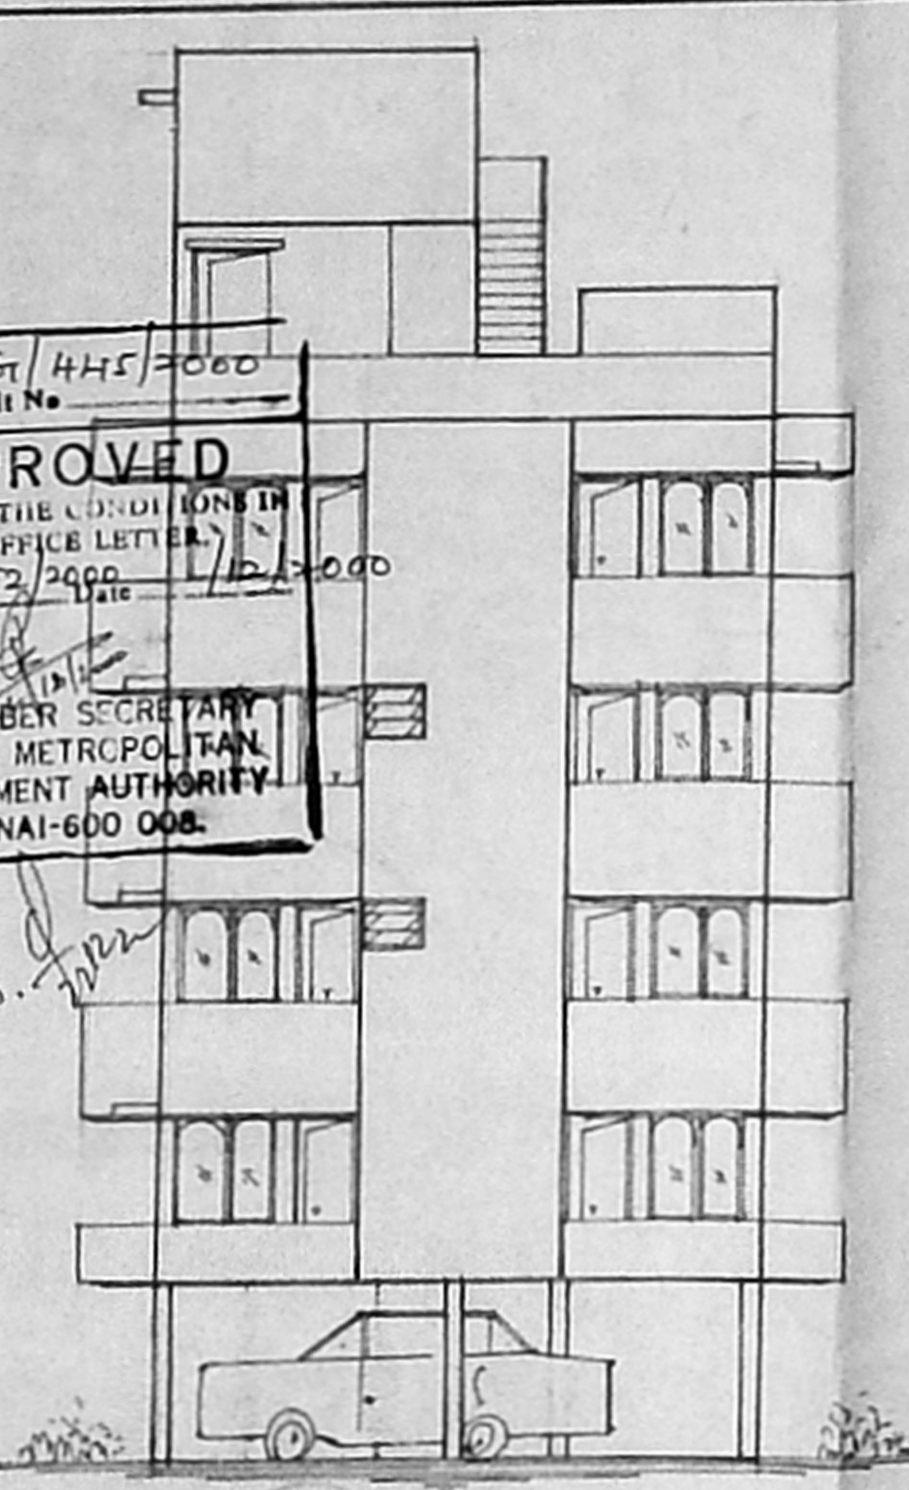 /445/2000
it No
ROVED
THE CONDITIONS IN
FFICE LETTER.
2/2000 Date /12/2000
BER SECRETARY
METROPOLITAN
MENT AUTHORITY
NAI-600 008.